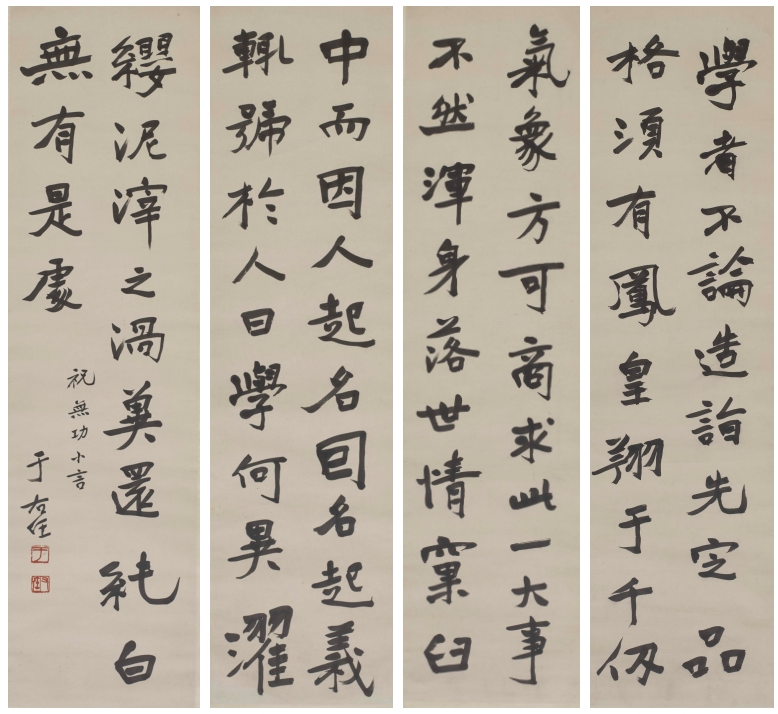 學者不論造詣先定品
格須有鳳皇翔于千仞
氣象方可商求此一大事
不然渾身落世情窠臼
中而因人起名囙名起義
輒號於人曰學何異濯
纓泥滓之渦冀還純白
無有是處
祝無功小言
于右任